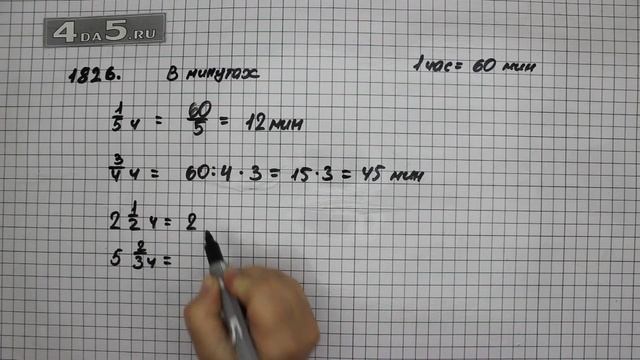 4DA5.RU
1826. В минутах 1 час = 60 мин
1/5 ч = 60/5 = 12 мин
3/4 ч = 60:4·3 = 15·3 = 45 мин
2 1/2 ч = 2
5 2/3 ч =